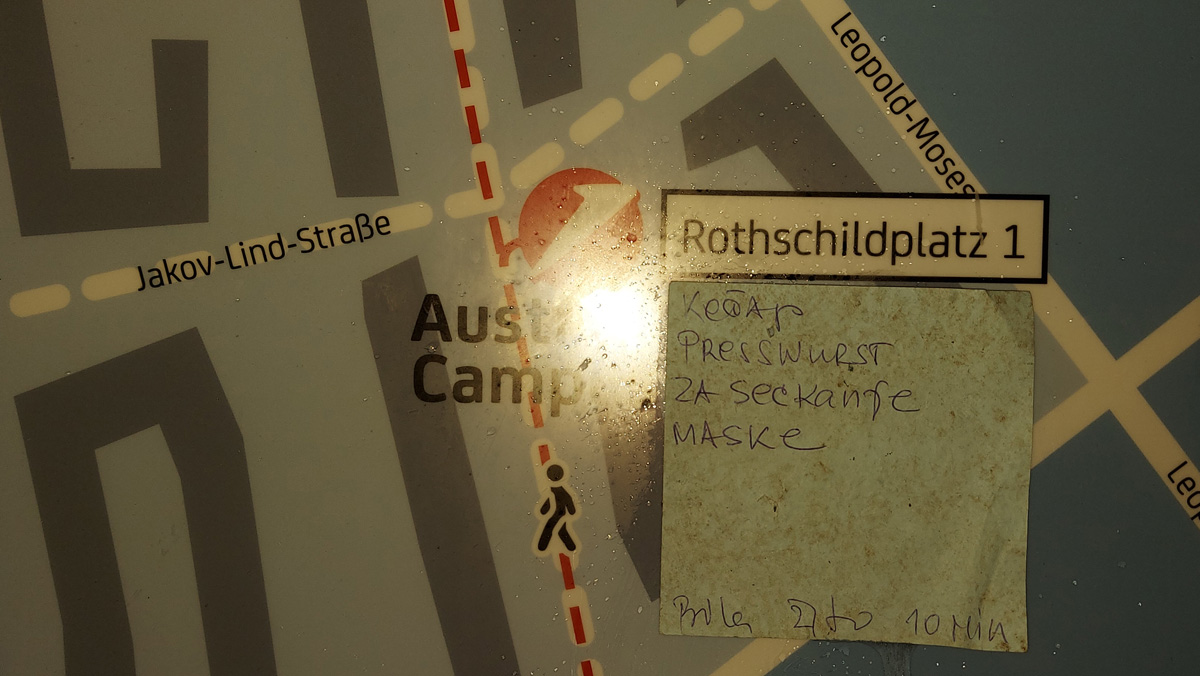 Leopold-Moses
Jakov-Lind-Straße
Rothschildplatz 1
Aust
Camp
PRESSWURST
ZA SecKANJE
MASKe
10 MiN
Leop